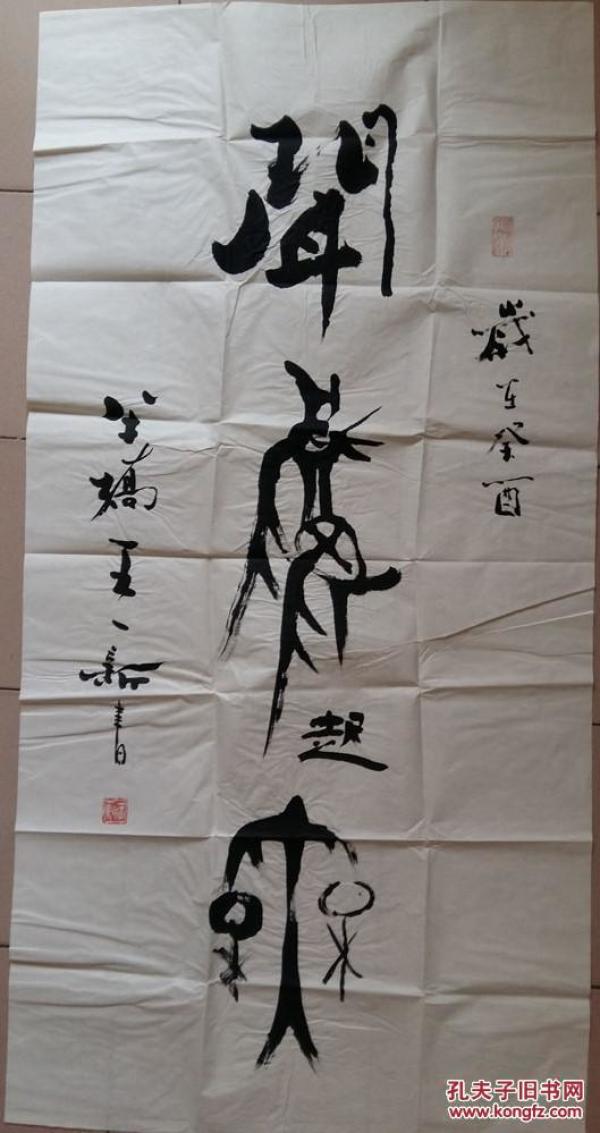 歲在癸酉
聞鷄起舞
橋王一新書
孔夫子旧书网
www.kongfz.com